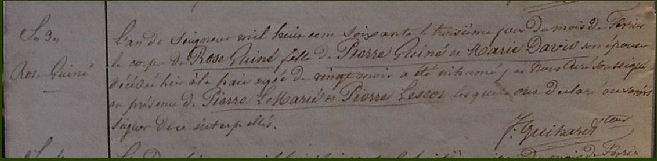 S. 3.
Rose Guiné
L'an du Seigneur mil huit cent soixante le troisième jour du mois de Février
le corps de Rose Guiné fille de Pierre Guiné et Marie David son épouse
décédée hier à la âgée de vingt mois a été inhumé par nous Curé soussigné
en présence de Pierre Lemarié et Pierre Lescop lesquels ont déclaré ne savoir
signer de ce interpellés.
J. Guihard
mois de Février